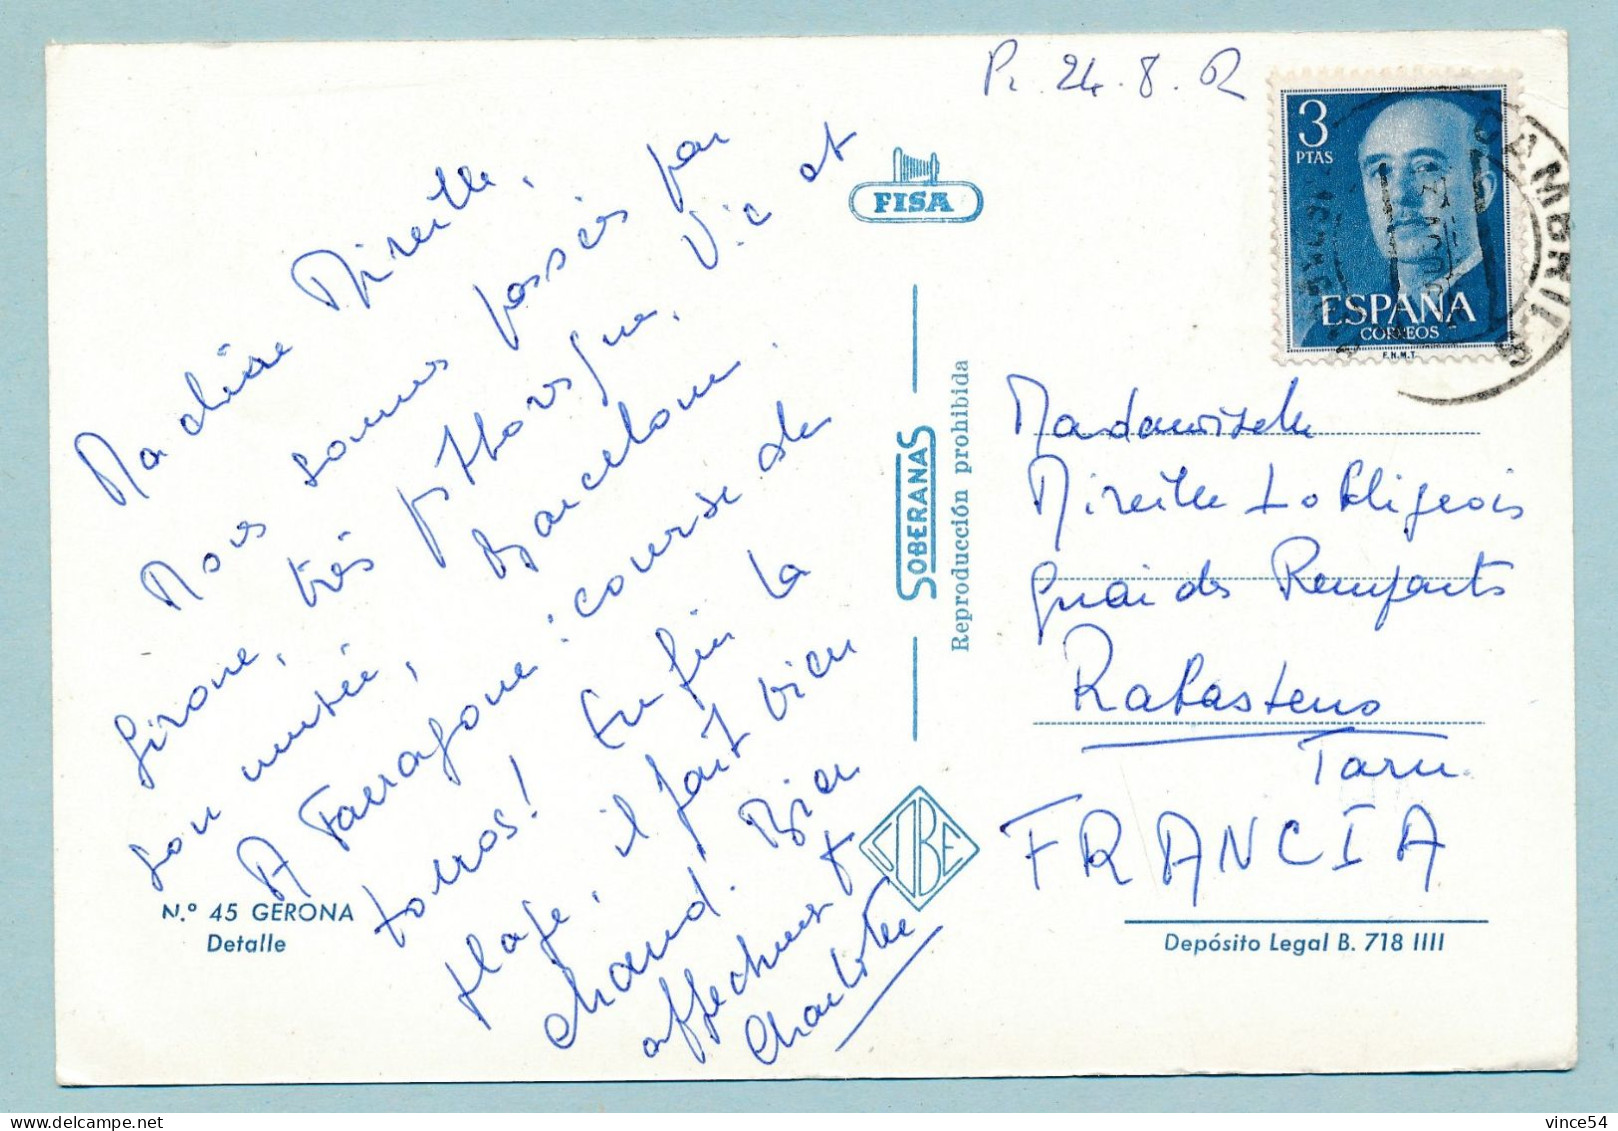 Ma chère Mireille,
Nous sommes passés par
Girone, très pittoresque, Vic et
son musée, Barcelone.
A Tarragone : course de
torros ! Enfin la
plage, il fait bien
chaud. Bien
affectueus t
Charlotte
N.º 45 GERONA
Detalle
24.8.
FISA
SOBERANAS
Reproducción prohibida
3
PTAS
ESPAÑA
CORREOS
F.N.M.T.
CAMBRILS
Mademoiselle
Mireille Lobligeois
Quai des Remparts
Rabastens
Tarn
FRANCIA
Depósito Legal B. 718 IIII
vince54